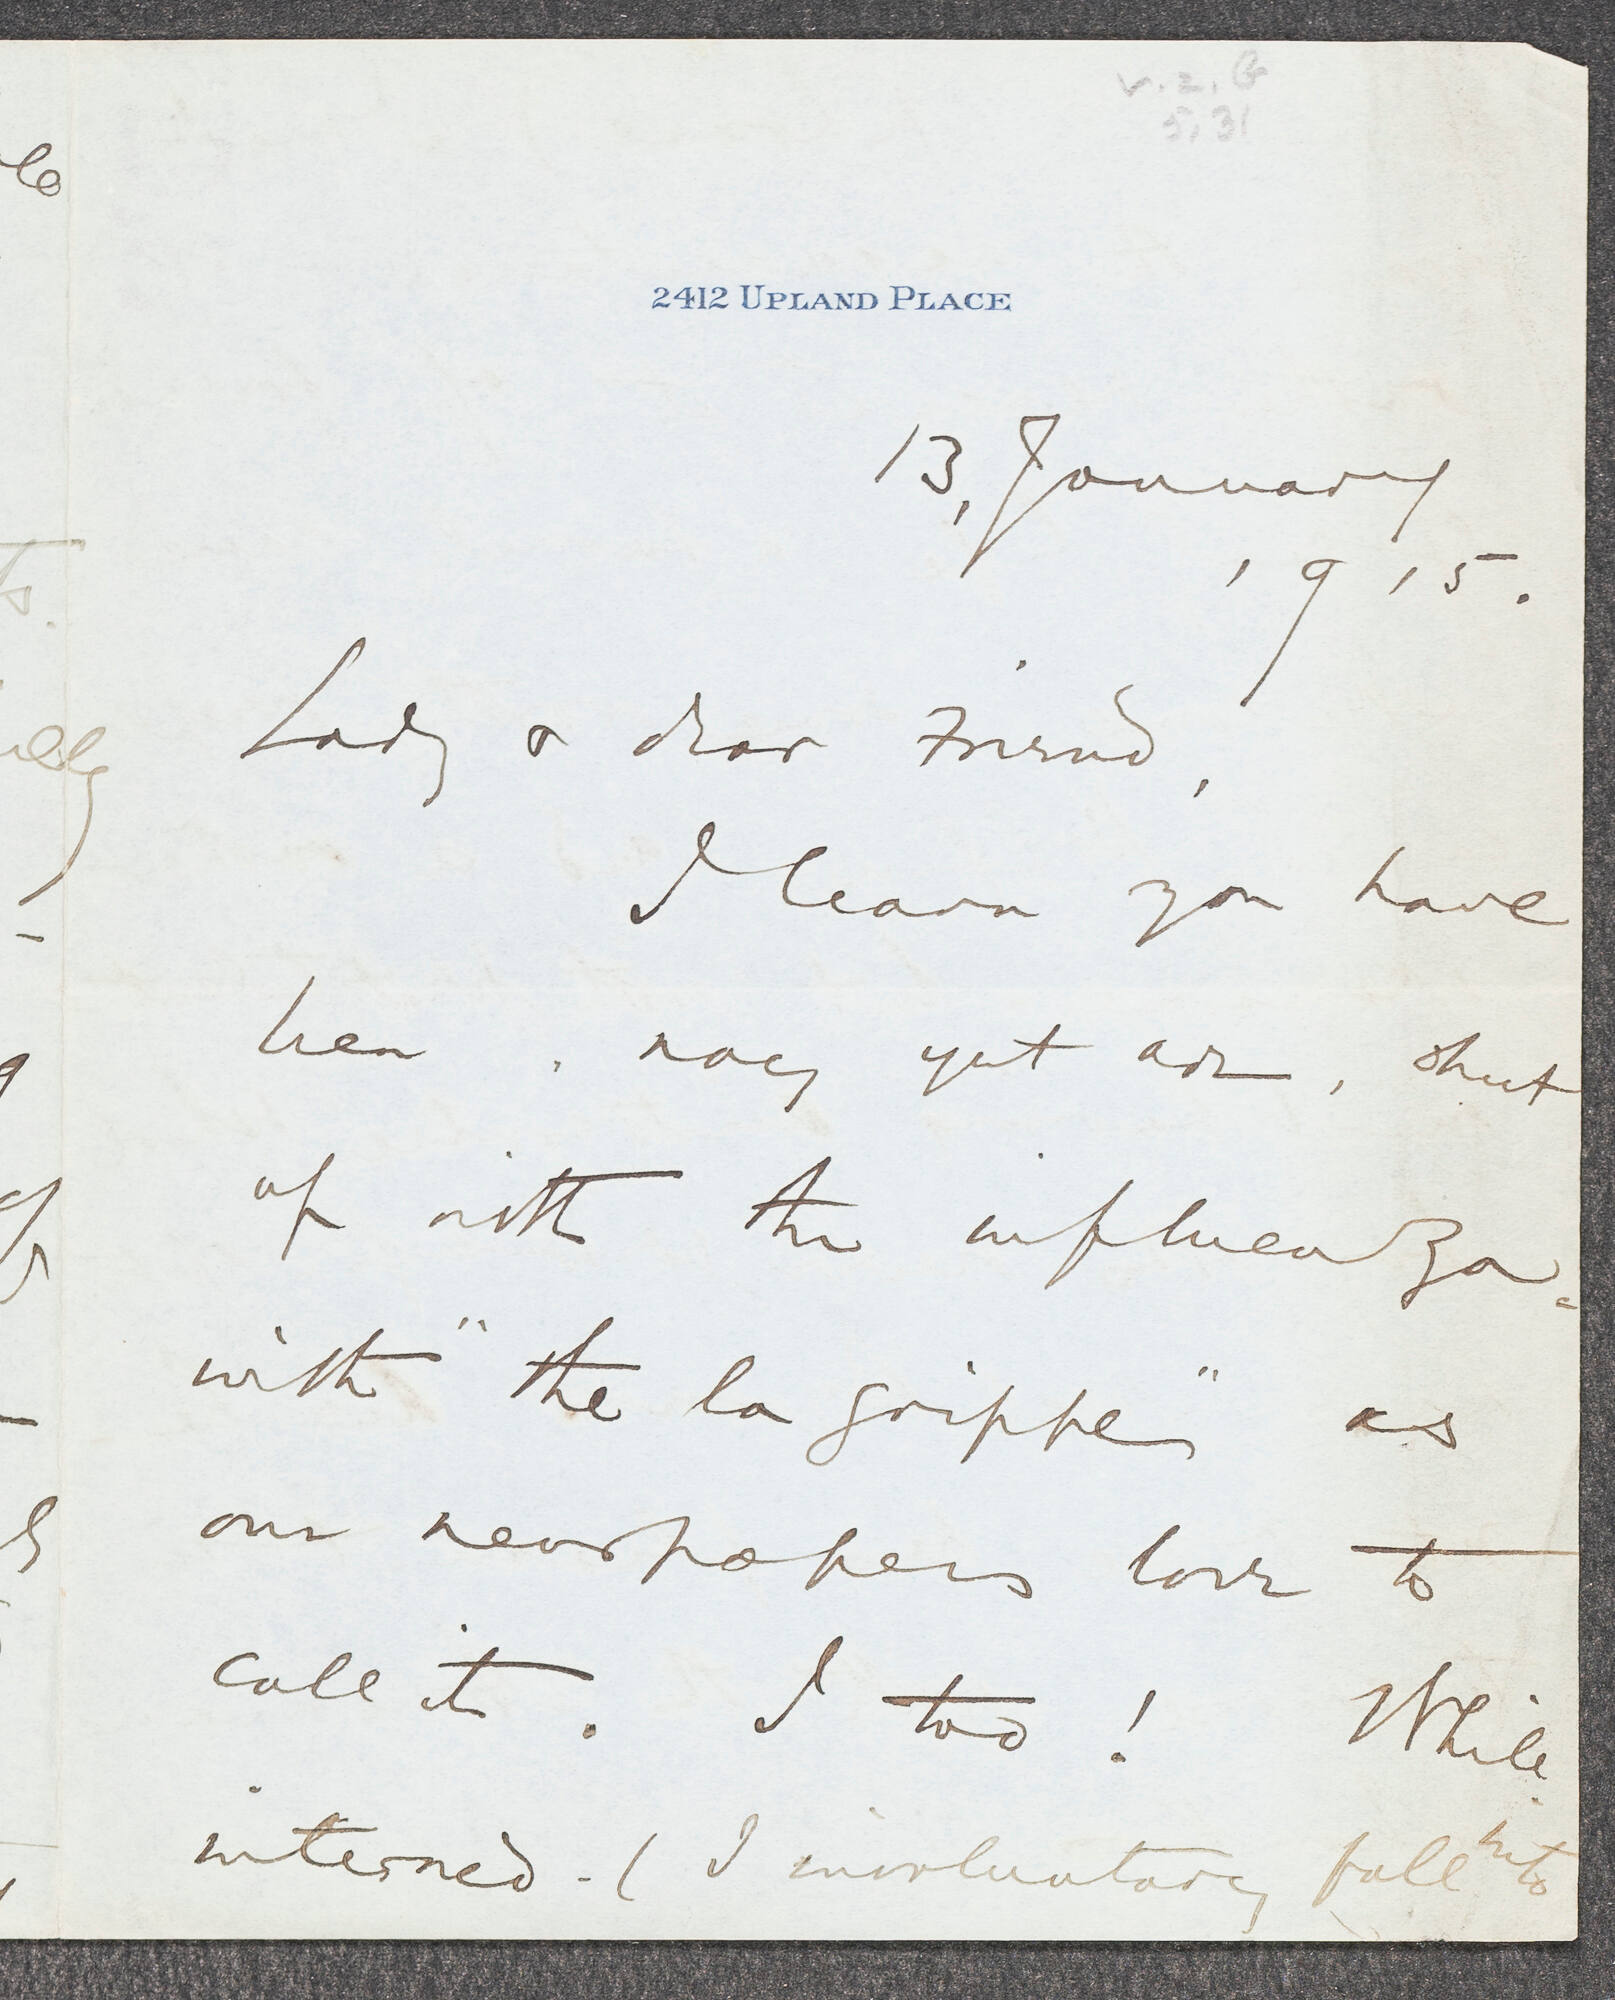 2412 UPLAND PLACE
13, January
1915.
Lady & dear Friend,
I learn you have
been, nay yet are, shut
up with the influenza -
with "the la grippe" as
our newspapers love to
call it. I too! While
interned - ( I involuntary fall into